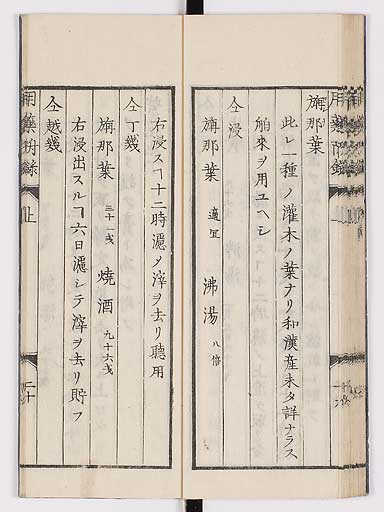 旃那葉
此レ一種ノ灌木ノ葉ナリ和漢産未タ詳ナラス
舶來ヲ用ユヘシ
仝浸
旃那葉 適宜 沸湯 八倍
右浸スヿ十二時濾メ滓ヲ去リ聽用
仝丁幾
旃那葉 三十一戔 燒酒 九十六戔
右浸出スルヿ六日濾シテ滓ヲ去リ貯フ
仝越幾
止
二十